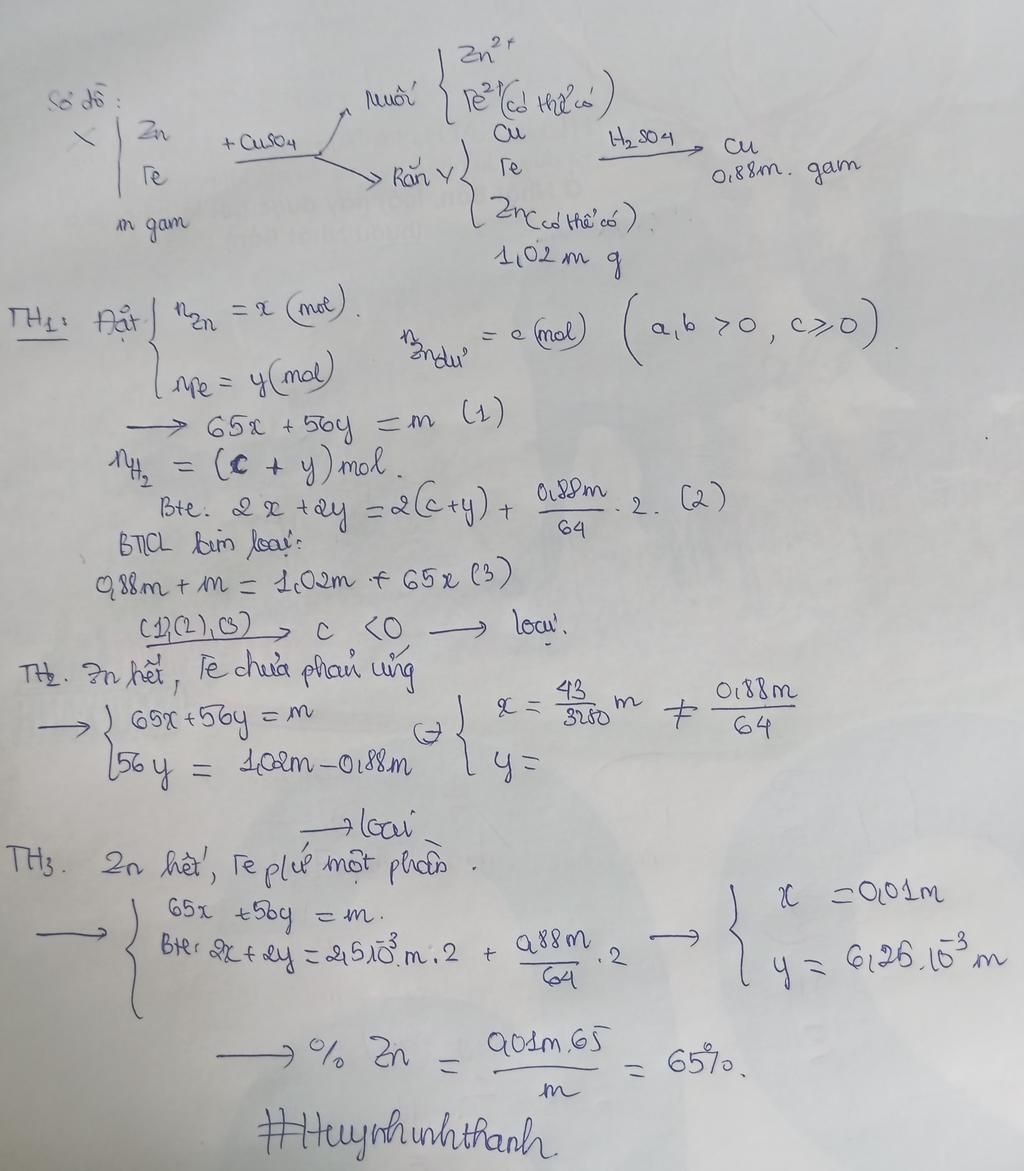 Sơ đồ:
X Zn Fe m gam + CuSO4
Muối Zn2+ Fe2+ (có thể có)
Rắn Y Cu Fe Zn (có thể có).
1,02m g
H2SO4 Cu
0,88m. gam
TH1: Đặt nZn = x (mol).
nFe = y (mol)
nZn dư = c (mol) (a,b > 0, c ⩾ 0).
→ 65x + 56y = m (1)
nH2 = (c + y) mol.
Bte: 2x + 2y = 2(c+y) + 0,88m/64 . 2. (2)
BTKL kim loại:
0,88m + m = 1,02m + 65x (3)
(1),(2),(3) → c < 0 → loại.
TH2. Zn hết, Fe chưa phản ứng
→ 65x + 56y = m
56y = 1,02m - 0,88m
⇔ x = 43/3250 m ≠ 0,88m/64
y =
→ loại
TH3. Zn hết, Fe pứ một phần.
→ 65x + 56y = m.
Bte: 2x + 2y = 2,5.10-3.m.2 + 0,88m/64 . 2
→ x = 0,01m
y = 6,25.10-3 m
→ % Zn = 0,01m.65/m = 65%.
#Huynhvinhthanh